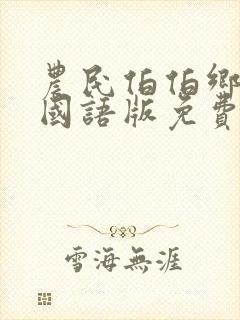 農民伯伯鄉
國語版免費
雪海無涯